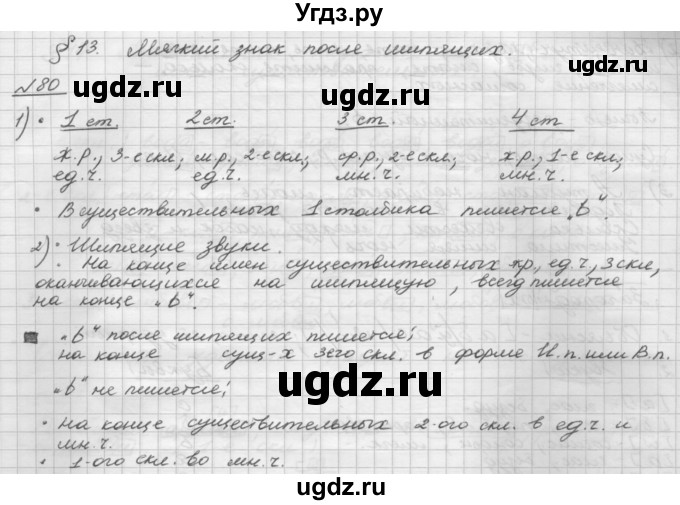 Угдз.ру
§ 13. Мягкий знак после шипящих.
ugdz.ru ugdz.ru
№80
1) • 1 ст. 2 ст. 3 ст. 4 ст
ж.р., 3-е скл; м.р., 2-е скл; ср.р., 2-е скл; ж.р., 1-е скл;
ед.ч. ед.ч. мн.ч. мн.ч.
ugdz.ru ugdz.ru
• В существительных 1 столбика пишется „ь".
2) • Шипящие звуки.
• На конце имен существительных жр., ед.ч, 3 скл,
оканчивающихся на шипящую, всегд пишется
на конце „ь".
ugdz.ru ugdz.ru
„ь" после шипящих пишется;
на конце сущ-х 3его скл. в форме И.п. или В.п.
„ь" не пишется;
ugdz.ru ugdz.ru
• на конце существительных 2-ого скл. в ед.ч. и
мн.ч.
• 1-ого скл. во мн.ч.
ugdz.ru ugdz.ru